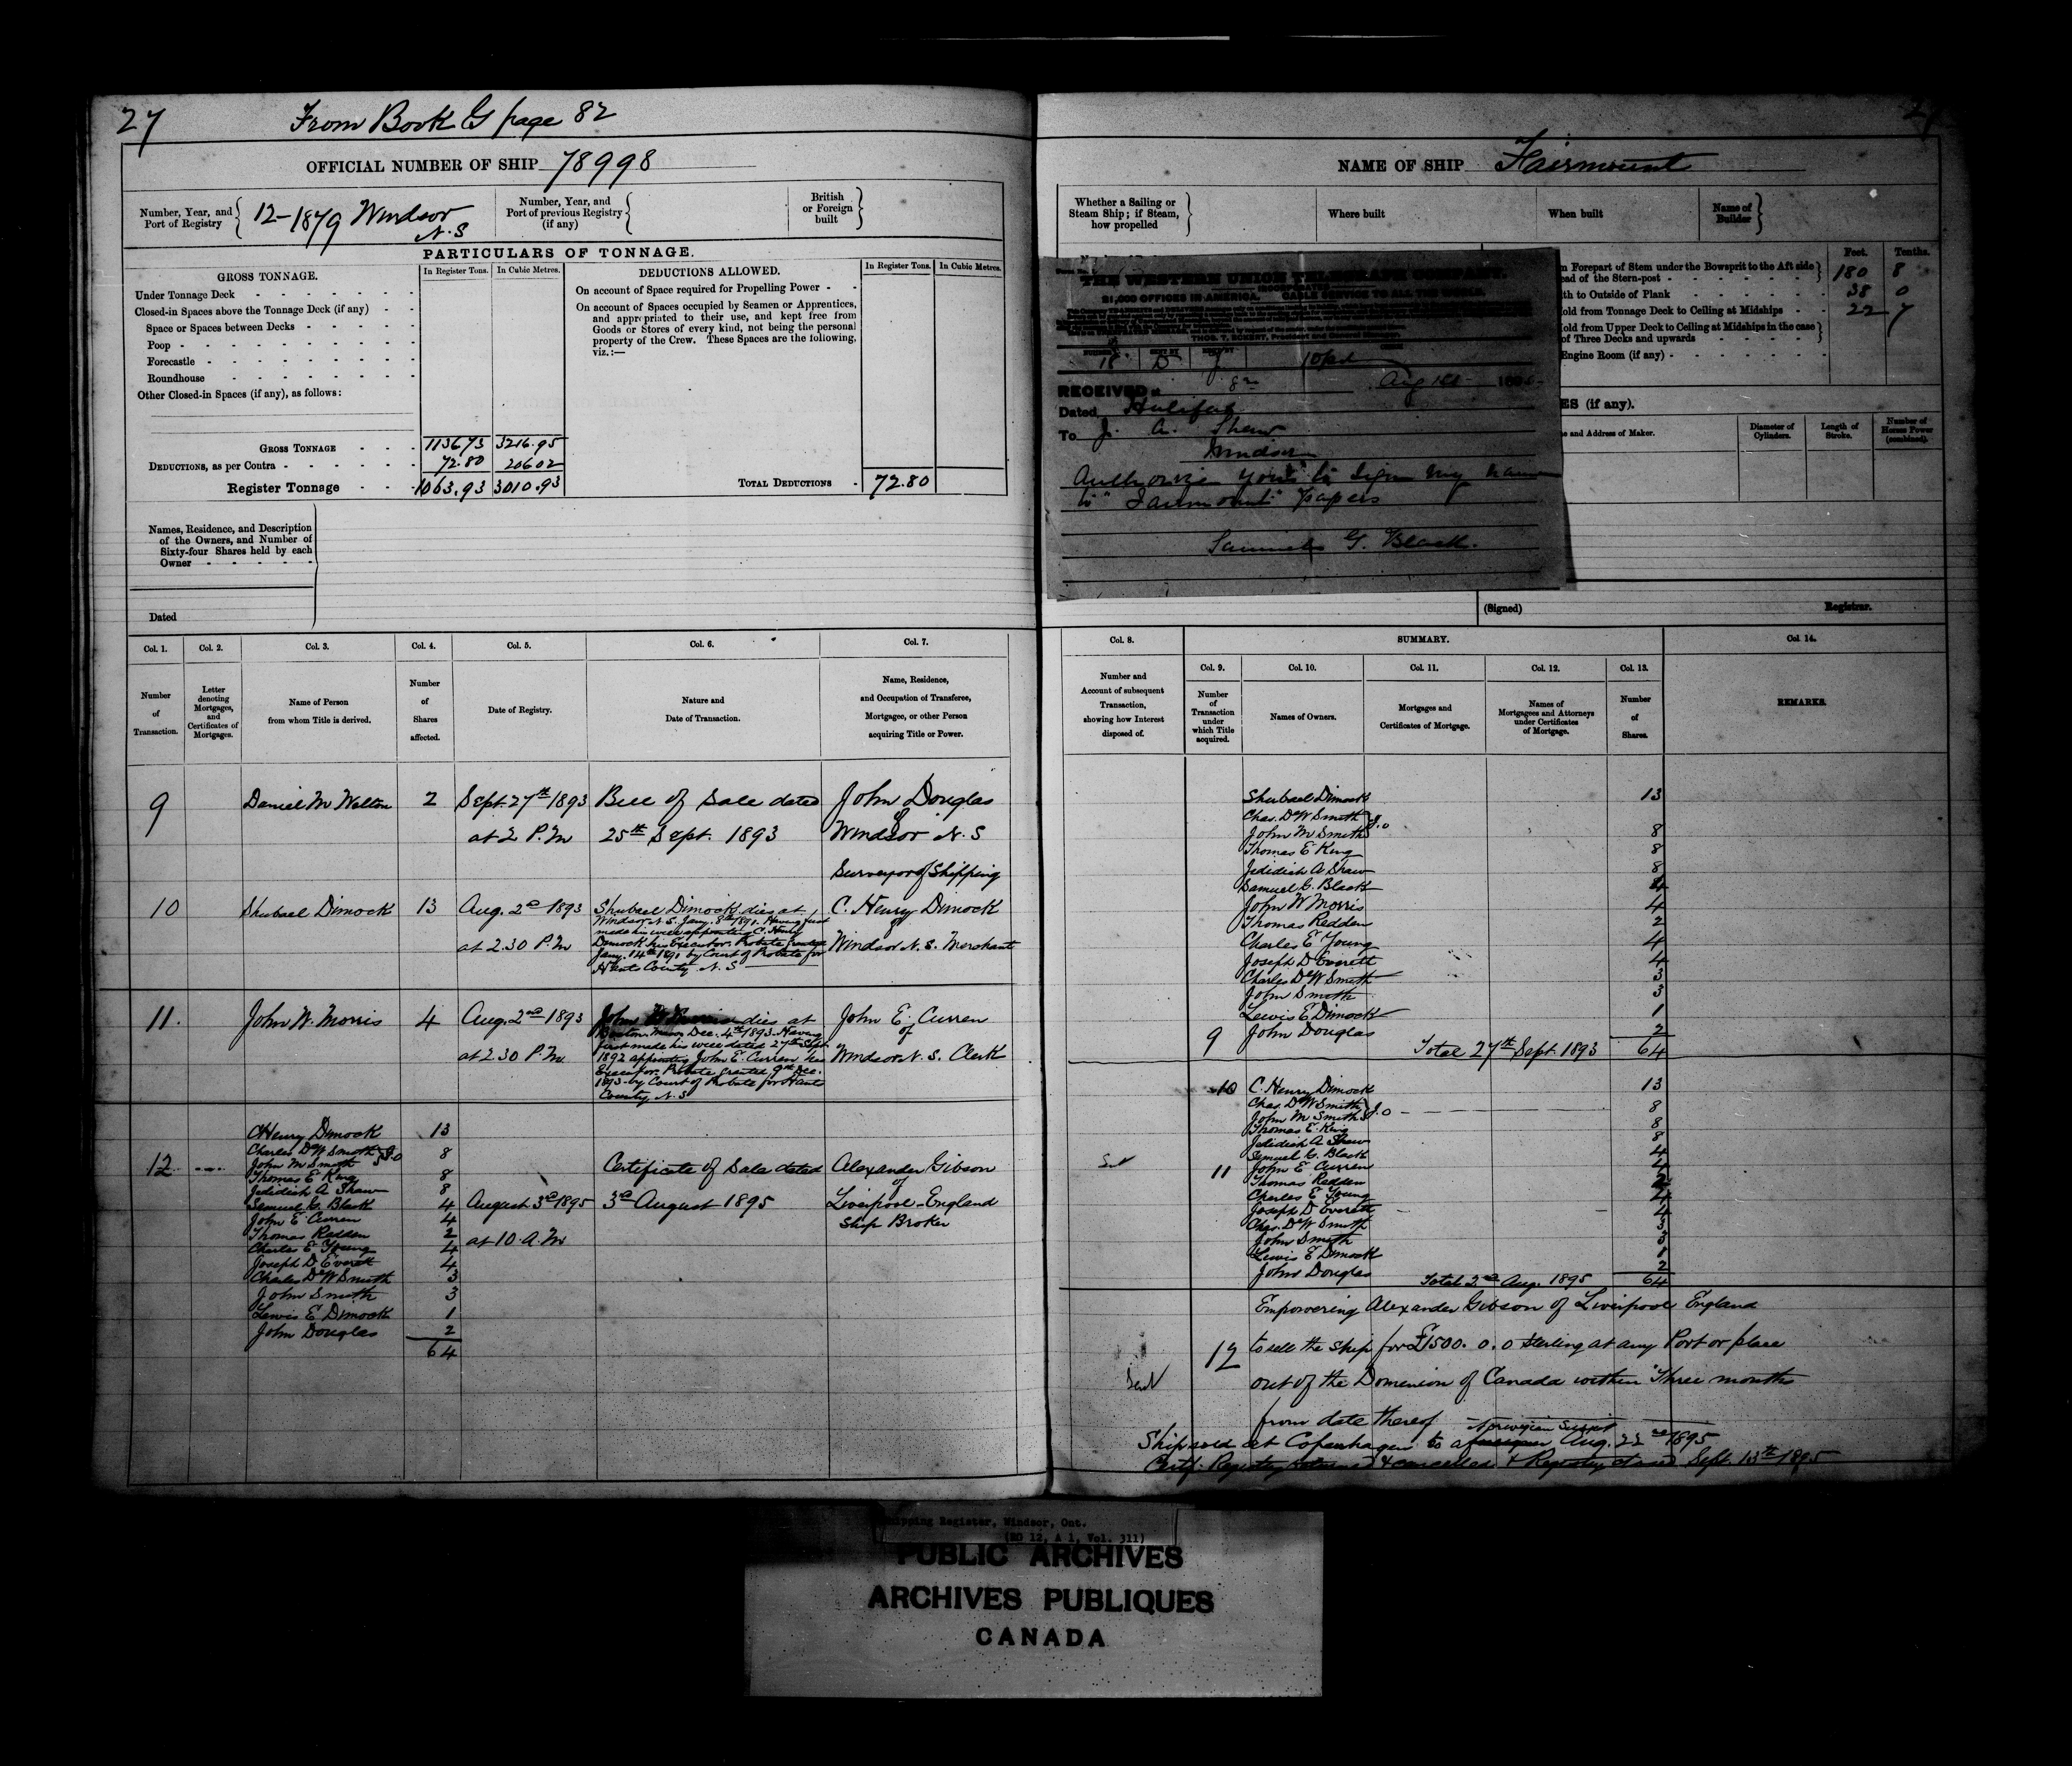 27
From Book G page 82
OFFICIAL NUMBER OF SHIP 78998
Number, Year, and Port of Registry
12-1879 Windsor N.S
Number, Year, and Port of previous Registry (if any)
British or Foreign built
PARTICULARS OF TONNAGE.
GROSS TONNAGE.
In Register Tons.
In Cubic Metres.
DEDUCTIONS ALLOWED.
In Register Tons.
In Cubic Metres.
Under Tonnage Deck
Closed-in Spaces above the Tonnage Deck (if any)
Space or Spaces between Decks
Poop
Forecastle
Roundhouse
Other Closed-in Spaces (if any), as follows:
On account of Space required for Propelling Power
On account of Spaces occupied by Seamen or Apprentices,
and appropriated to their use, and kept free from
Goods or Stores of every kind, not being the personal
property of the Crew. These Spaces are the following,
viz.:—
GROSS TONNAGE 1136.73 3216.95
DEDUCTIONS, as per Contra 72.80 206.02
Register Tonnage 1063.93 3010.93
TOTAL DEDUCTIONS 72.80
Names, Residence, and Description
of the Owners, and Number of
Sixty-four Shares held by each
Owner
Dated
Col. 1. Col. 2. Col. 3. Col. 4. Col. 5. Col. 6. Col. 7.
Number of Transaction.
Letter denoting Mortgages, and Certificates of Mortgages.
Name of Person from whom Title is derived.
Number of Shares affected.
Date of Registry.
Nature and Date of Transaction.
Name, Residence, and Occupation of Transferee, Mortgagee, or other Person acquiring Title or Power.
9 Daniel M Welton 2 Sept. 27th 1893 Bill of Sale dated John Douglas
of
at 2 P.M 25th Sept. 1893 Windsor N.S
Surveyor of Shipping
10 Shubael Dimock 13 Aug. 2nd 1893 Shubael Dimock dies at C. Henry Dimock
Windsor N.S. Jany. 8th 1891. Having first of
made his will appointing C. Henry
at 2.30 P.M Dimock his Executor. Probate granted Windsor N.S. Merchant
Jany. 14th 1891 by Court of Probate for
Hants County N.S
11. John W. Morris 4 Aug. 2nd 1893 John W Morris dies at John E. Curren
Boston Mass Dec. 4th 1893. Having of
first made his will dated 27th Sept.
at 2.30 P.M. 1892 appointing John E. Curren his Windsor N.S. Clerk
Executor. Probate granted 9th Dec.
1893 by Court of Probate for Hants
County N.S
12
C Henry Dimock 13
Charles DeW Smith } J.O 8
John M Smith
Thomas E King 8
Jedidiah A Shaw 8
Samuel G. Black 4
John E Curren 4
Thomas Redden 2
Charles E Young 4
Joseph D Everett 4
Charles DeW Smith 3
John Smith 3
Lewis E Dimock 1
John Douglas 2
64
August 3rd 1895
at 10 A.M
Certificate of Sale dated
3rd August 1895
Alexander Gibson
of
Liverpool England
Ship Broker
NAME OF SHIP Fairmount
Whether a Sailing or Steam Ship; if Steam, how propelled
Where built
When built
Name of Builder
THE WESTERN UNION TELEGRAPH COMPANY.
INCORPORATED
21,000 OFFICES IN AMERICA. CABLE SERVICE TO ALL THE WORLD.
THOS. T. ECKERT, President and General Manager.
RECEIVED at
Dated Halifax
To J. A. Shaw
Windsor
Authorize you to sign my name
to "Fairmount" papers
Samuel G. Black.
Feet. Tenths.
Forepart of Stem under the Bowsprit to the Aft side
ead of the Stern-post 180 8
th to Outside of Plank 38 0
old from Tonnage Deck to Ceiling at Midships 22 7
old from Upper Deck to Ceiling at Midships in the case
of Three Decks and upwards
Engine Room (if any)
ES (if any).
e and Address of Maker.
Diameter of Cylinders.
Length of Stroke.
Number of Horses Power (combined).
(Signed) Registrar.
Col. 8.
SUMMARY.
Col. 9. Col. 10. Col. 11. Col. 12. Col. 13. Col. 14.
Number and Account of subsequent Transaction, showing how Interest disposed of.
Number of Transaction under which Title acquired.
Names of Owners.
Mortgages and Certificates of Mortgage.
Names of Mortgagees and Attorneys under Certificates of Mortgage.
Number of Shares.
REMARKS.
Shubael Dimock 13
Chas. DeW Smith } J.O
John M Smith 8
Thomas E King 8
Jedidiah A Shaw 8
Samuel G. Black 4
John W Morris 4
Thomas Redden 2
Charles E Young 4
Joseph D Everett 4
Charles DeW Smith 3
John Smith 3
Lewis E Dimock 1
9 John Douglas 2
Total 27th Sept. 1893 64
10 C. Henry Dimock 13
Chas. DeW Smith } J.O 8
John M Smith
Thomas E. King 8
Jedidiah A Shaw 8
Samuel G. Black 4
11 John E Curren 4
Thomas Redden 2
Charles E Young 4
Joseph D Everett 4
Chas. DeW Smith 3
John Smith 3
Lewis E Dimock 1
John Douglas 2
Total 2nd Aug. 1895 64
Empowering Alexander Gibson of Liverpool England
12 to sell the Ship for £1500. 0. 0 sterling at any Port or place
out of the Dominion of Canada within Three months
from date thereof
Norwegian Subject
Ship sold at Copenhagen to a foreigner Aug. 22nd 1895
Certf. Registry returned & cancelled & Registry closed Sept. 13th 1895
ipping Register, Windsor, Ont.
(RG 12, A 1, Vol. 311)
PUBLIC ARCHIVES
ARCHIVES PUBLIQUES
CANADA